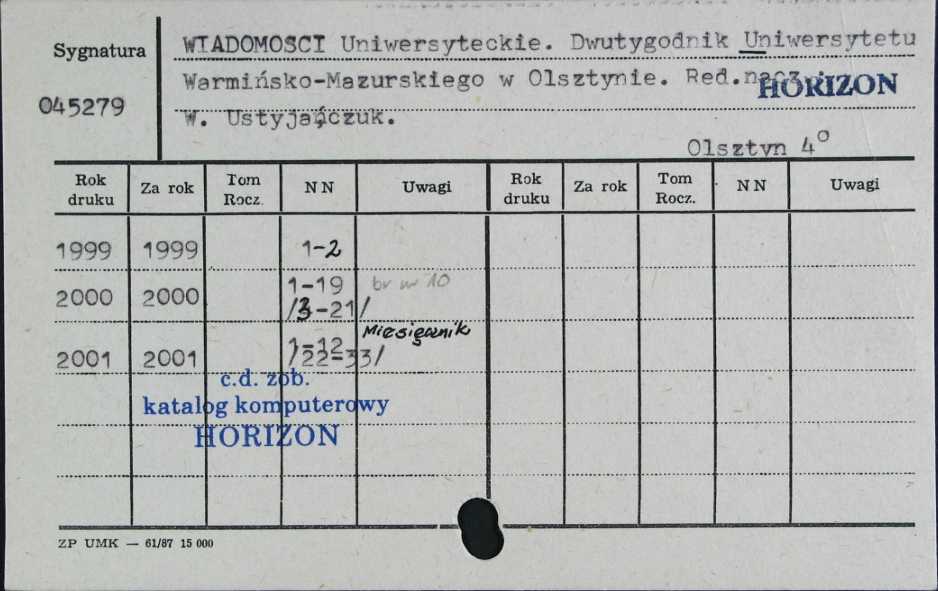 Sygnatura
045279
WIADOMOSCI Uniwersyteckie. Dwutygodnik Uniwersytetu
Warmińsko-Mazurskiego w Olsztynie. Red.nacz.
HORIZON
W. Ustyjańczuk.
Olsztyn 4°
Rok druku Za rok Tom Rocz. NN Uwagi Rok druku Za rok Tom Rocz. NN Uwagi
1999 1999 1-2
2000 2000 1-19 br nr 10
/3-21/
Miesięcznik
2001 2001 1-12
/22-33/
c.d. zob.
katalog komputerowy
HORIZON
ZP UMK — 61/87 15 000